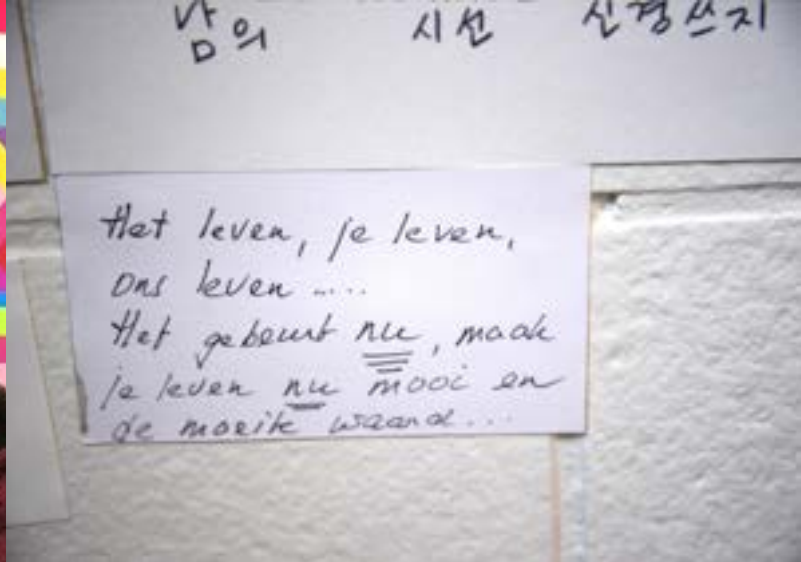 남의 시선 신경쓰지
Het leven, je leven,
ons leven .....
Het gebeurt nu, maak
je leven nu mooi en
de moeite waard...